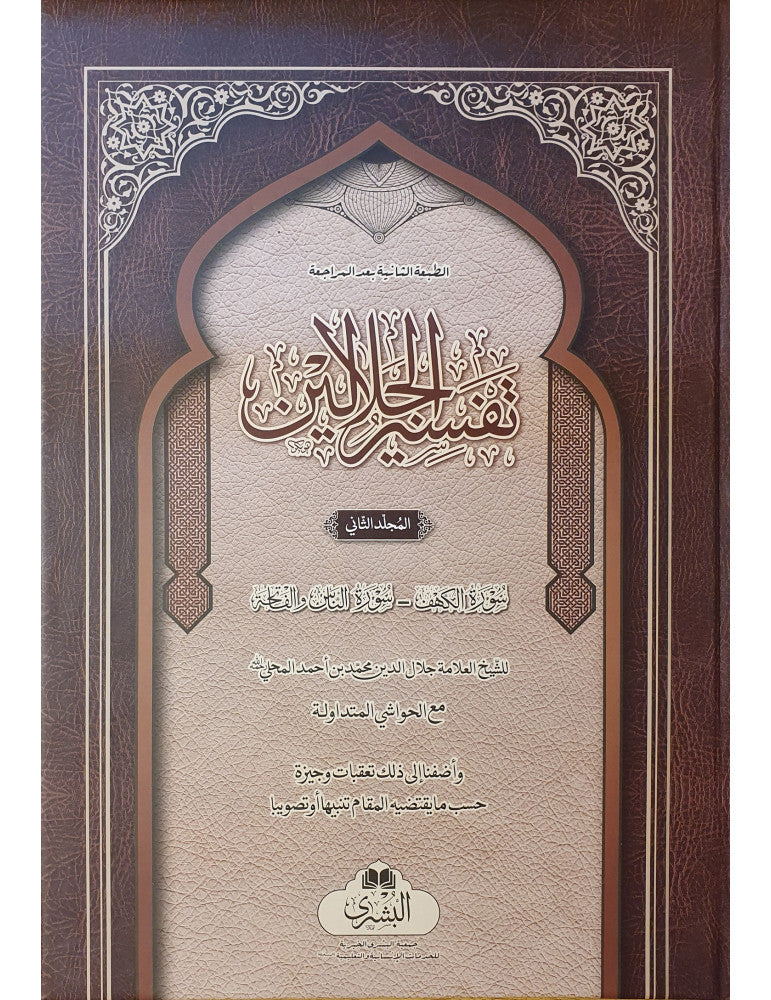 الطبعة الثانية بعد المراجعة
تفسير الجلالين
المجلد الثاني
سورة الكهف – سورة الناس والفاتحة
للشيخ العلامة جلال الدين محمد بن أحمد المحلي رحمه الله
مع الحواشي المتداولة
وأضفنا إلى ذلك تعقبات وجيزة
حسب ما يقتضيه المقام تنبيها أو تصويبا
البشرى
جمعية البشرى الخيرية
للخدمات الإنسانية والتعليمية